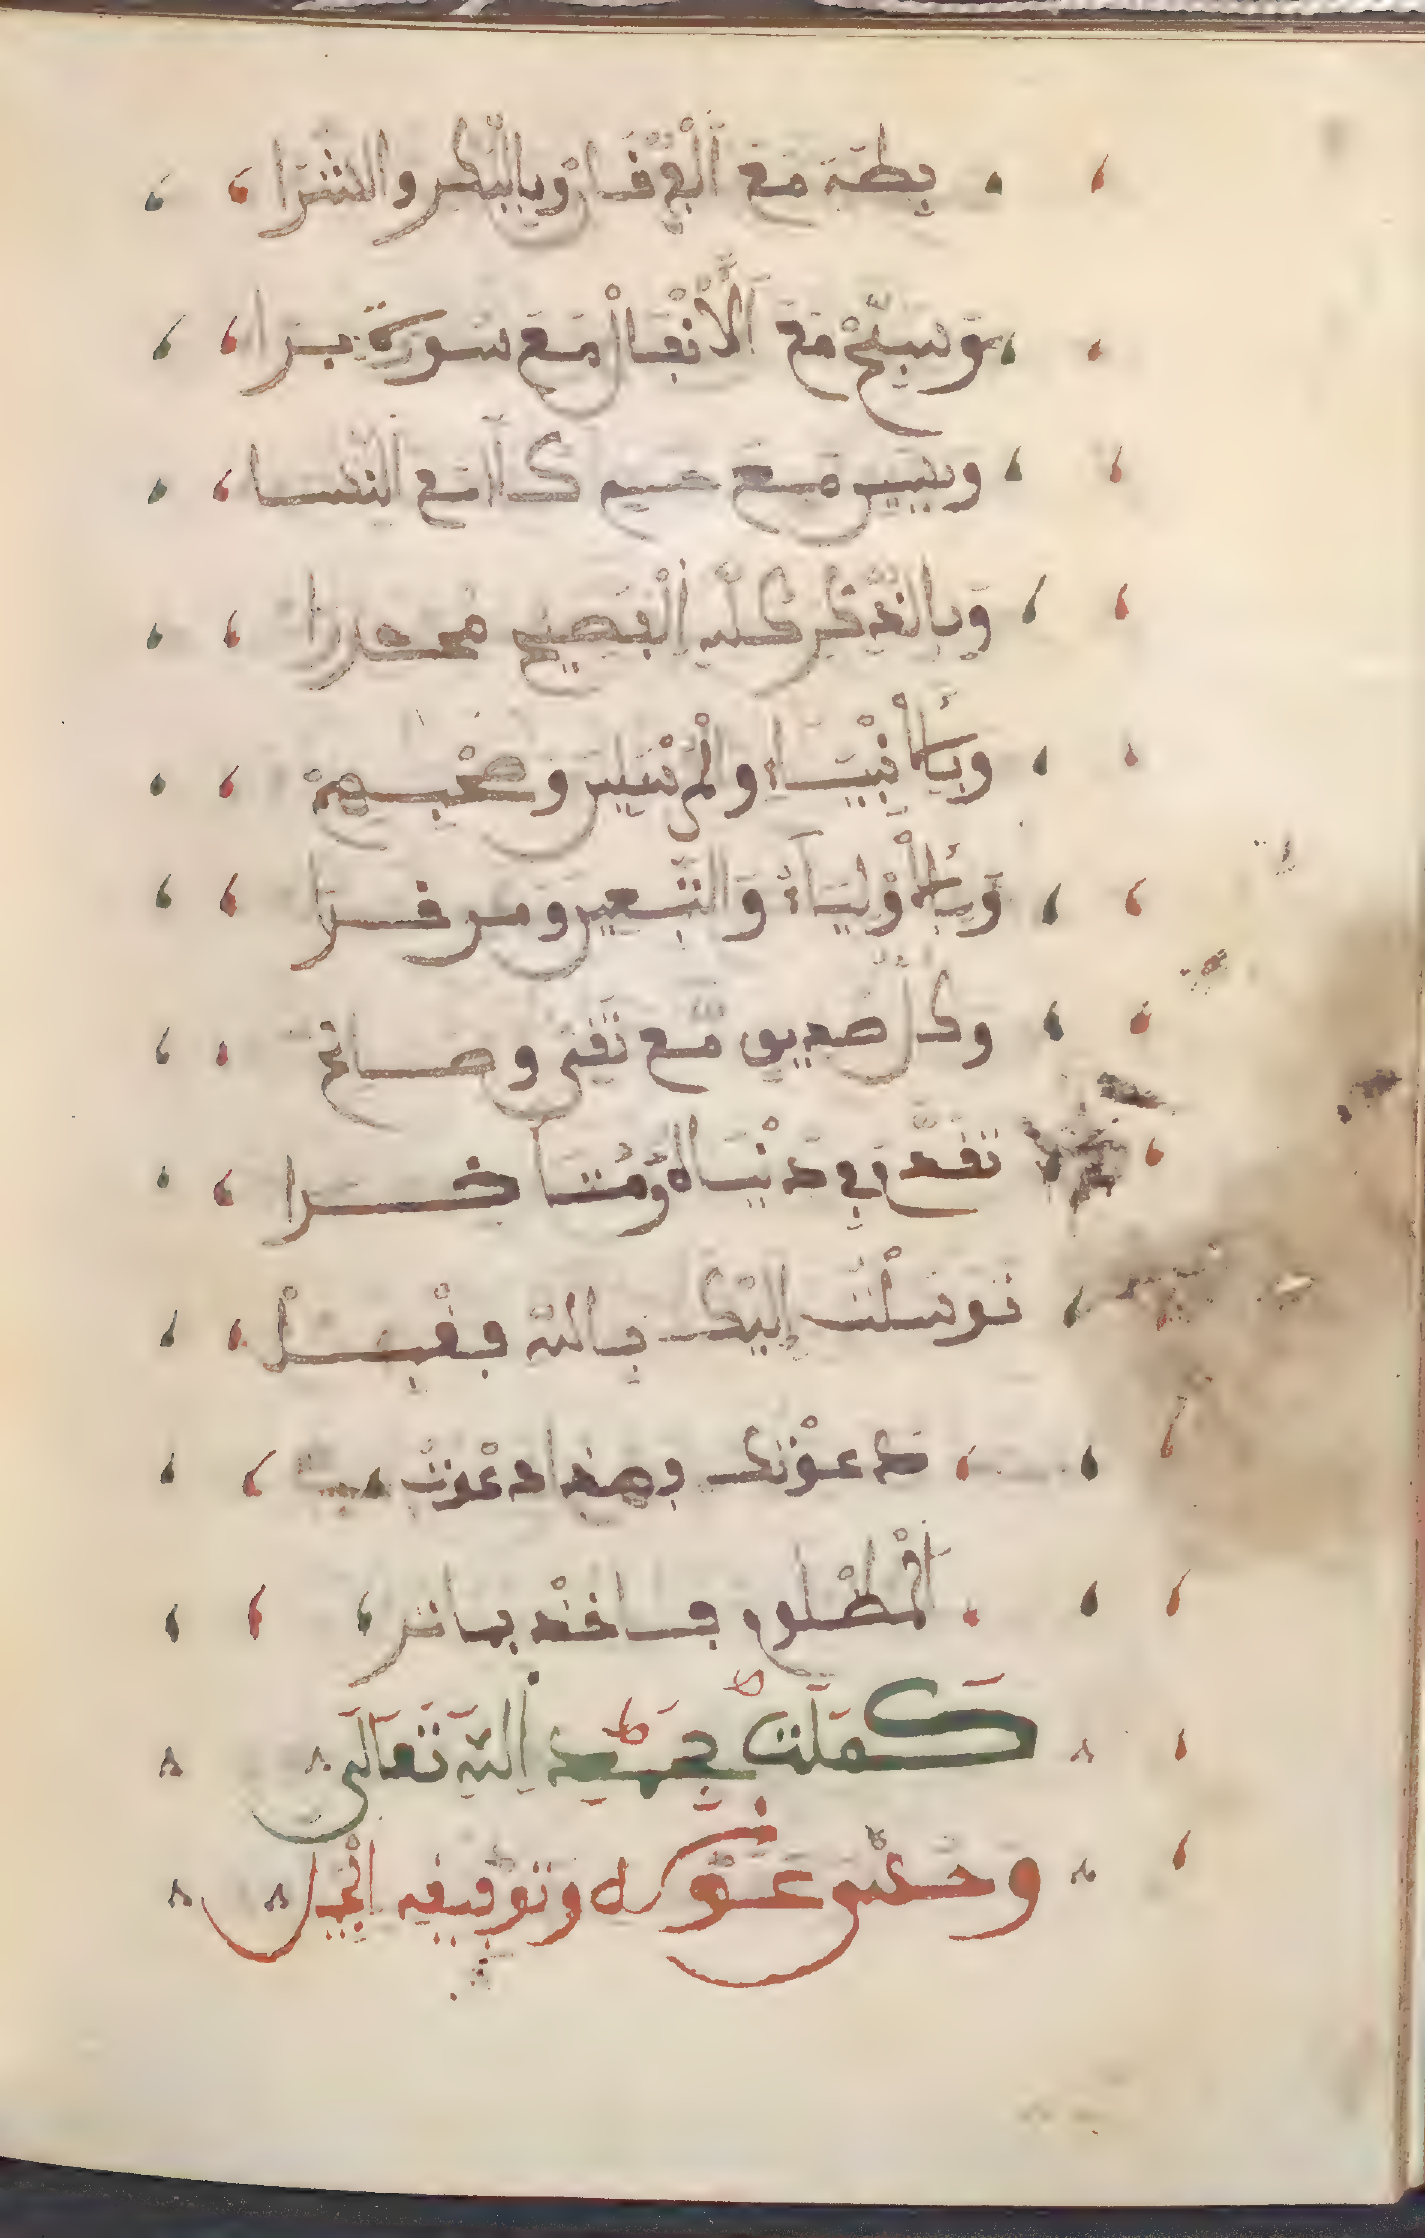 بطه مع الفرقان وبالبكر والشرا
وسبح مع الانفال مع سورة برا
ويس مع حم كلا مع النسا
وبالذكر كله الفصيح محررا
وبالأنبياء والمرسلين وصحبهم
وبالأولياء والتابعين ومن قرا
وكل صديق مع تقي وصالح
تقدم في دنياه ومتأخرا
توسلت إليك بالله فاقبل
دعوتك وهذا دعوت
المطلوب فاخذ بما تر
كملت بحمد الله تعالى
وحسن عونه وتوفيقه الجميل